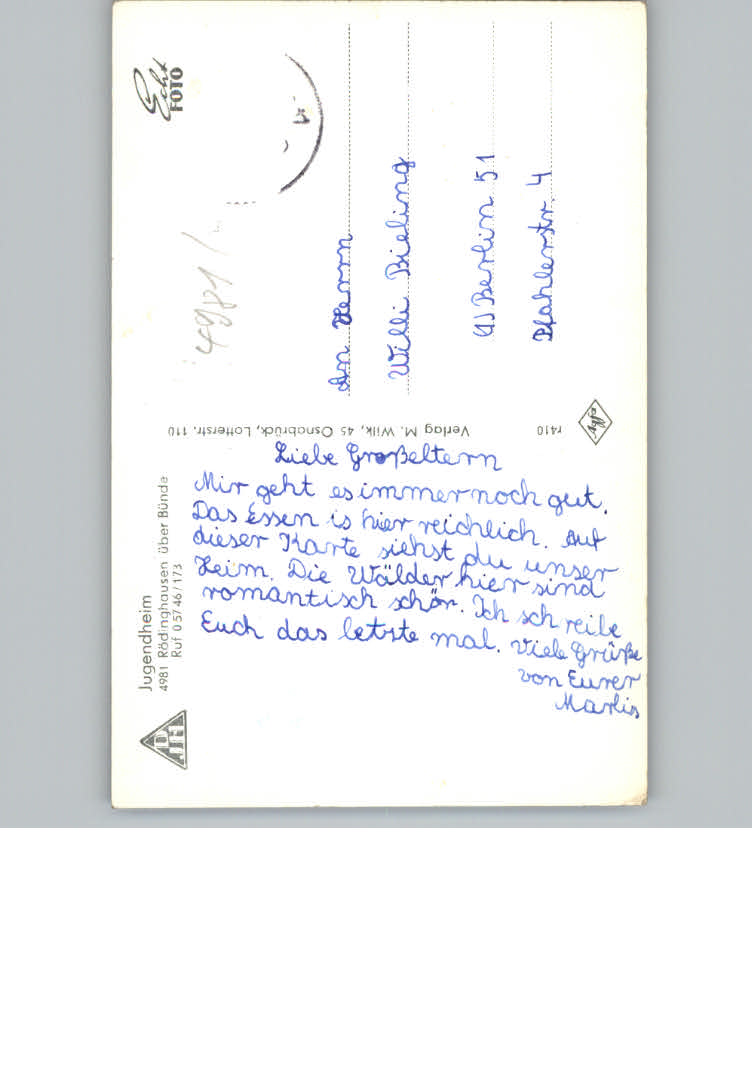 Jugendheim
4981 Rödinghausen über Bünde
Ruf 05746/173
DJH
Liebe Großeltern
Mir geht es immer noch gut.
Das Essen is hier reichlich. Auf
dieser Karte siehst du unser
Heim. Die Wälder hier sind
romantisch schön. Ich schreibe
Euch das letzte mal. Viele Grüße
von Eurer
Marlis
Verlag M. Wilk, 45 Osnabrück, Lotterstr. 110
r410
Agfa
Echt
FOTO
4981
An Herrn
Willi Bieling
Berlin 51
Pfahlerstr. 4